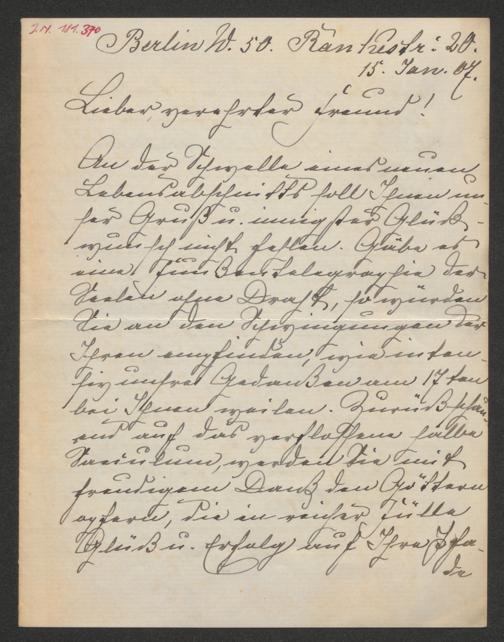 I.N. 181.390
Berlin W. 50. Rankestr: 20.
15. Jan. 07.
Lieber, verehrter Freund!
An der Schwelle eines neuen
Lebensabschnitts soll Ihnen un-
ser Gruß u. innigster Glück-
wunsch nicht fehlen. Gäbe es
eine Funkentelegraphie der
Seelen ohne Draht, so würden
Sie an den Schwingungen der
Ihren empfinden, wie inten-
siv unsre Gedanken am 17ten
bei Ihnen weilen. Zurückschau-
end auf das verflossene halbe
Saeculum, werden Sie mit
freudigem Dank den Göttern
opfern, die in reicher Fülle
Glück u. Erfolg auf Ihre Pfa-
de